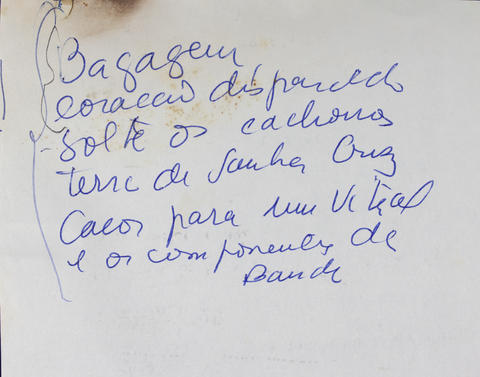 Bagagem
coração disparado
Solte os cachorros
terra de Santa Cruz
Cacos para um vitral
e os componentes da
Banda